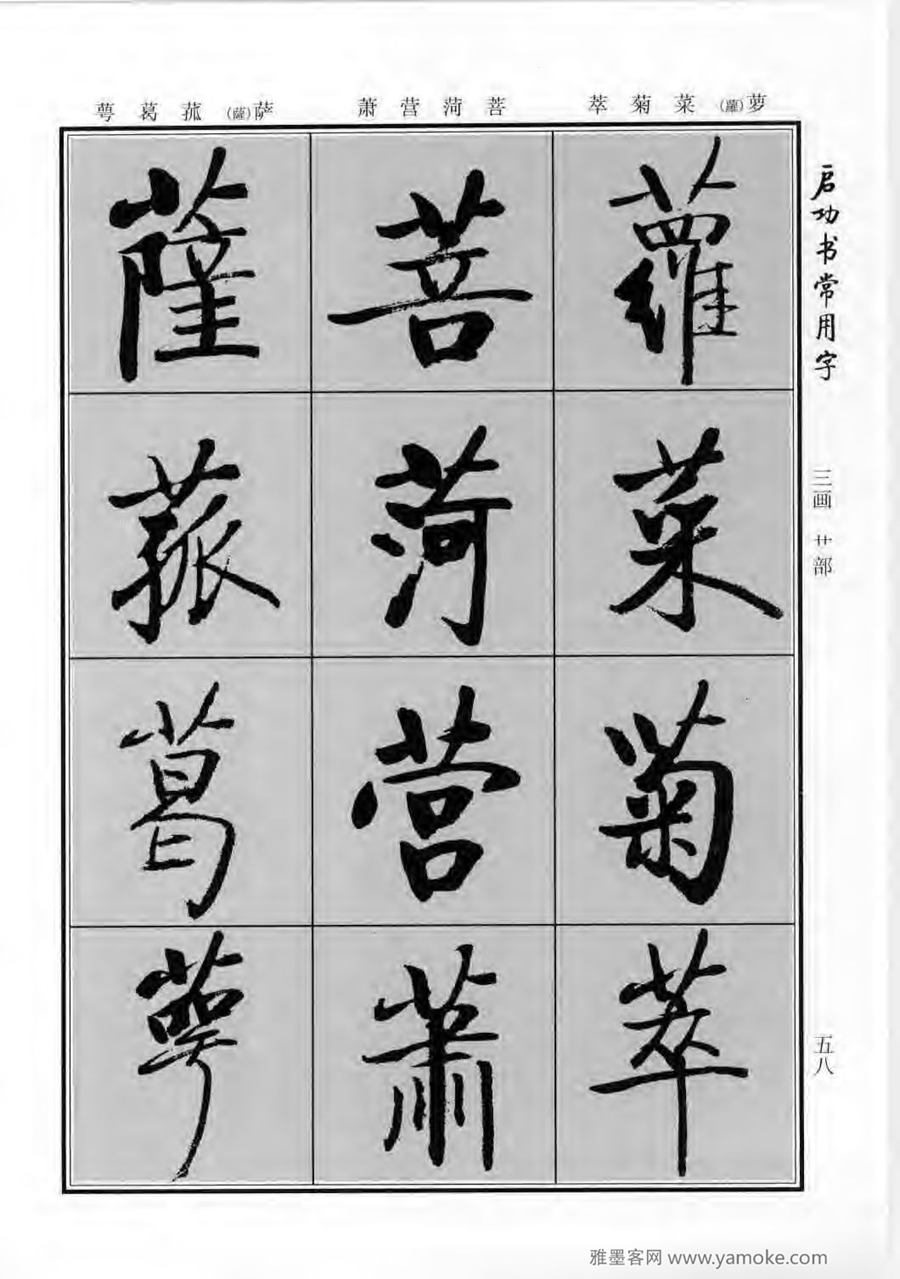 萝(蘿)菜菊萃 菩菏营萧 萨(薩)菰葛萼
启功书常用字
三画 艹部
五八
蘿菜菊萃
菩菏营蕭
薩菰葛萼
雅墨客网 www.yamoke.com